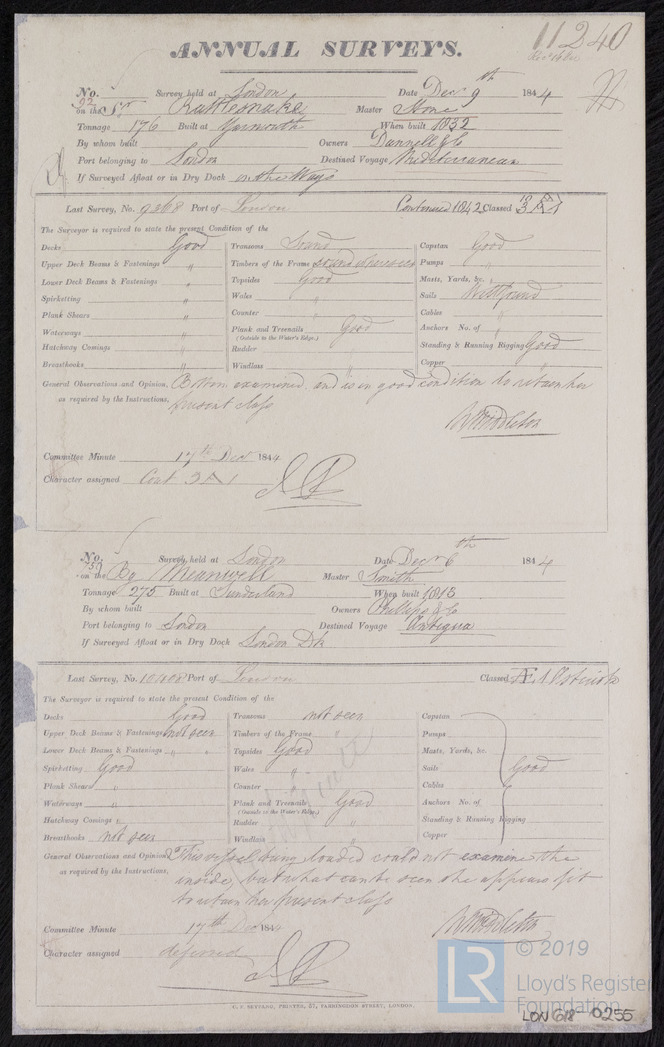 11240
ANNUAL SURVEYS.
No. 92 Survey held at London Date Decr 9th 1844
on the Sr Rattlesnake Master Stone
Tonnage 176 Built at Yarmouth When built 1832
By whom built Owners Dannell & Co
Port belonging to London Destined Voyage Mediterranean
If Surveyed Afloat or in Dry Dock on the Ways
Last Survey, No. 9268 Port of London Continued 1842 Classed 3 A 1
The Surveyor is required to state the present Condition of the
Decks Good Transoms Sound Capstan Good
Upper Deck Beams & Fastenings " Timbers of the Frame sound where seen Pumps "
Lower Deck Beams & Fastenings " Topsides Good Masts, Yards, &c. "
Spirketting " Wales " Sails Well found
Plank Shears " Counter " Cables "
Waterways " Plank and Treenails Good Anchors No. of "
(Outside to the Water's Edge.)
Hatchway Comings " Rudder " Standing & Running Rigging Good
Breasthooks " Windlass " Copper "
General Observations and Opinion, Bottom examined and is in good condition to retain her
as required by the Instructions, present class
W Middleton
Committee Minute 17th Decr 1844
Character assigned Cont 3 A 1
No. 759 Survey held at London Date Decr 6th 1844
on the Bg Meanwell Master Smith
Tonnage 275 Built at Sunderland When built 1813
By whom built Owners Phillipps & Co
Port belonging to London Destined Voyage Antigua
If Surveyed Afloat or in Dry Dock London Dk
Last Survey, No. Port of London Classed Æ 1
The Surveyor is required to state the present Condition of the
Decks Good Transoms not seen Capstan
Upper Deck Beams & Fastenings not seen Timbers of the Frame Pumps
Lower Deck Beams & Fastenings " " Topsides Good Masts, Yards, &c.
Spirketting Good Wales " Sails Good
Plank Shears " Counter Cables
Waterways " Plank and Treenails Good Anchors No. of
(Outside to the Water's Edge.)
Hatchway Comings " Rudder " Standing & Running Rigging
Breasthooks not seen Windlass " Copper
General Observations and Opinion, This vessel being loaded could not examine the
as required by the Instructions, inside, but what can be seen she appears fit
to retain her present class
W Middleton
Committee Minute 17th Decr 1844
Character assigned deferred
C. F. SEYFANG, PRINTER, 57, FARRINGDON STREET, LONDON.
LR © 2019
Lloyd's Register
Foundation
LON 618-0255